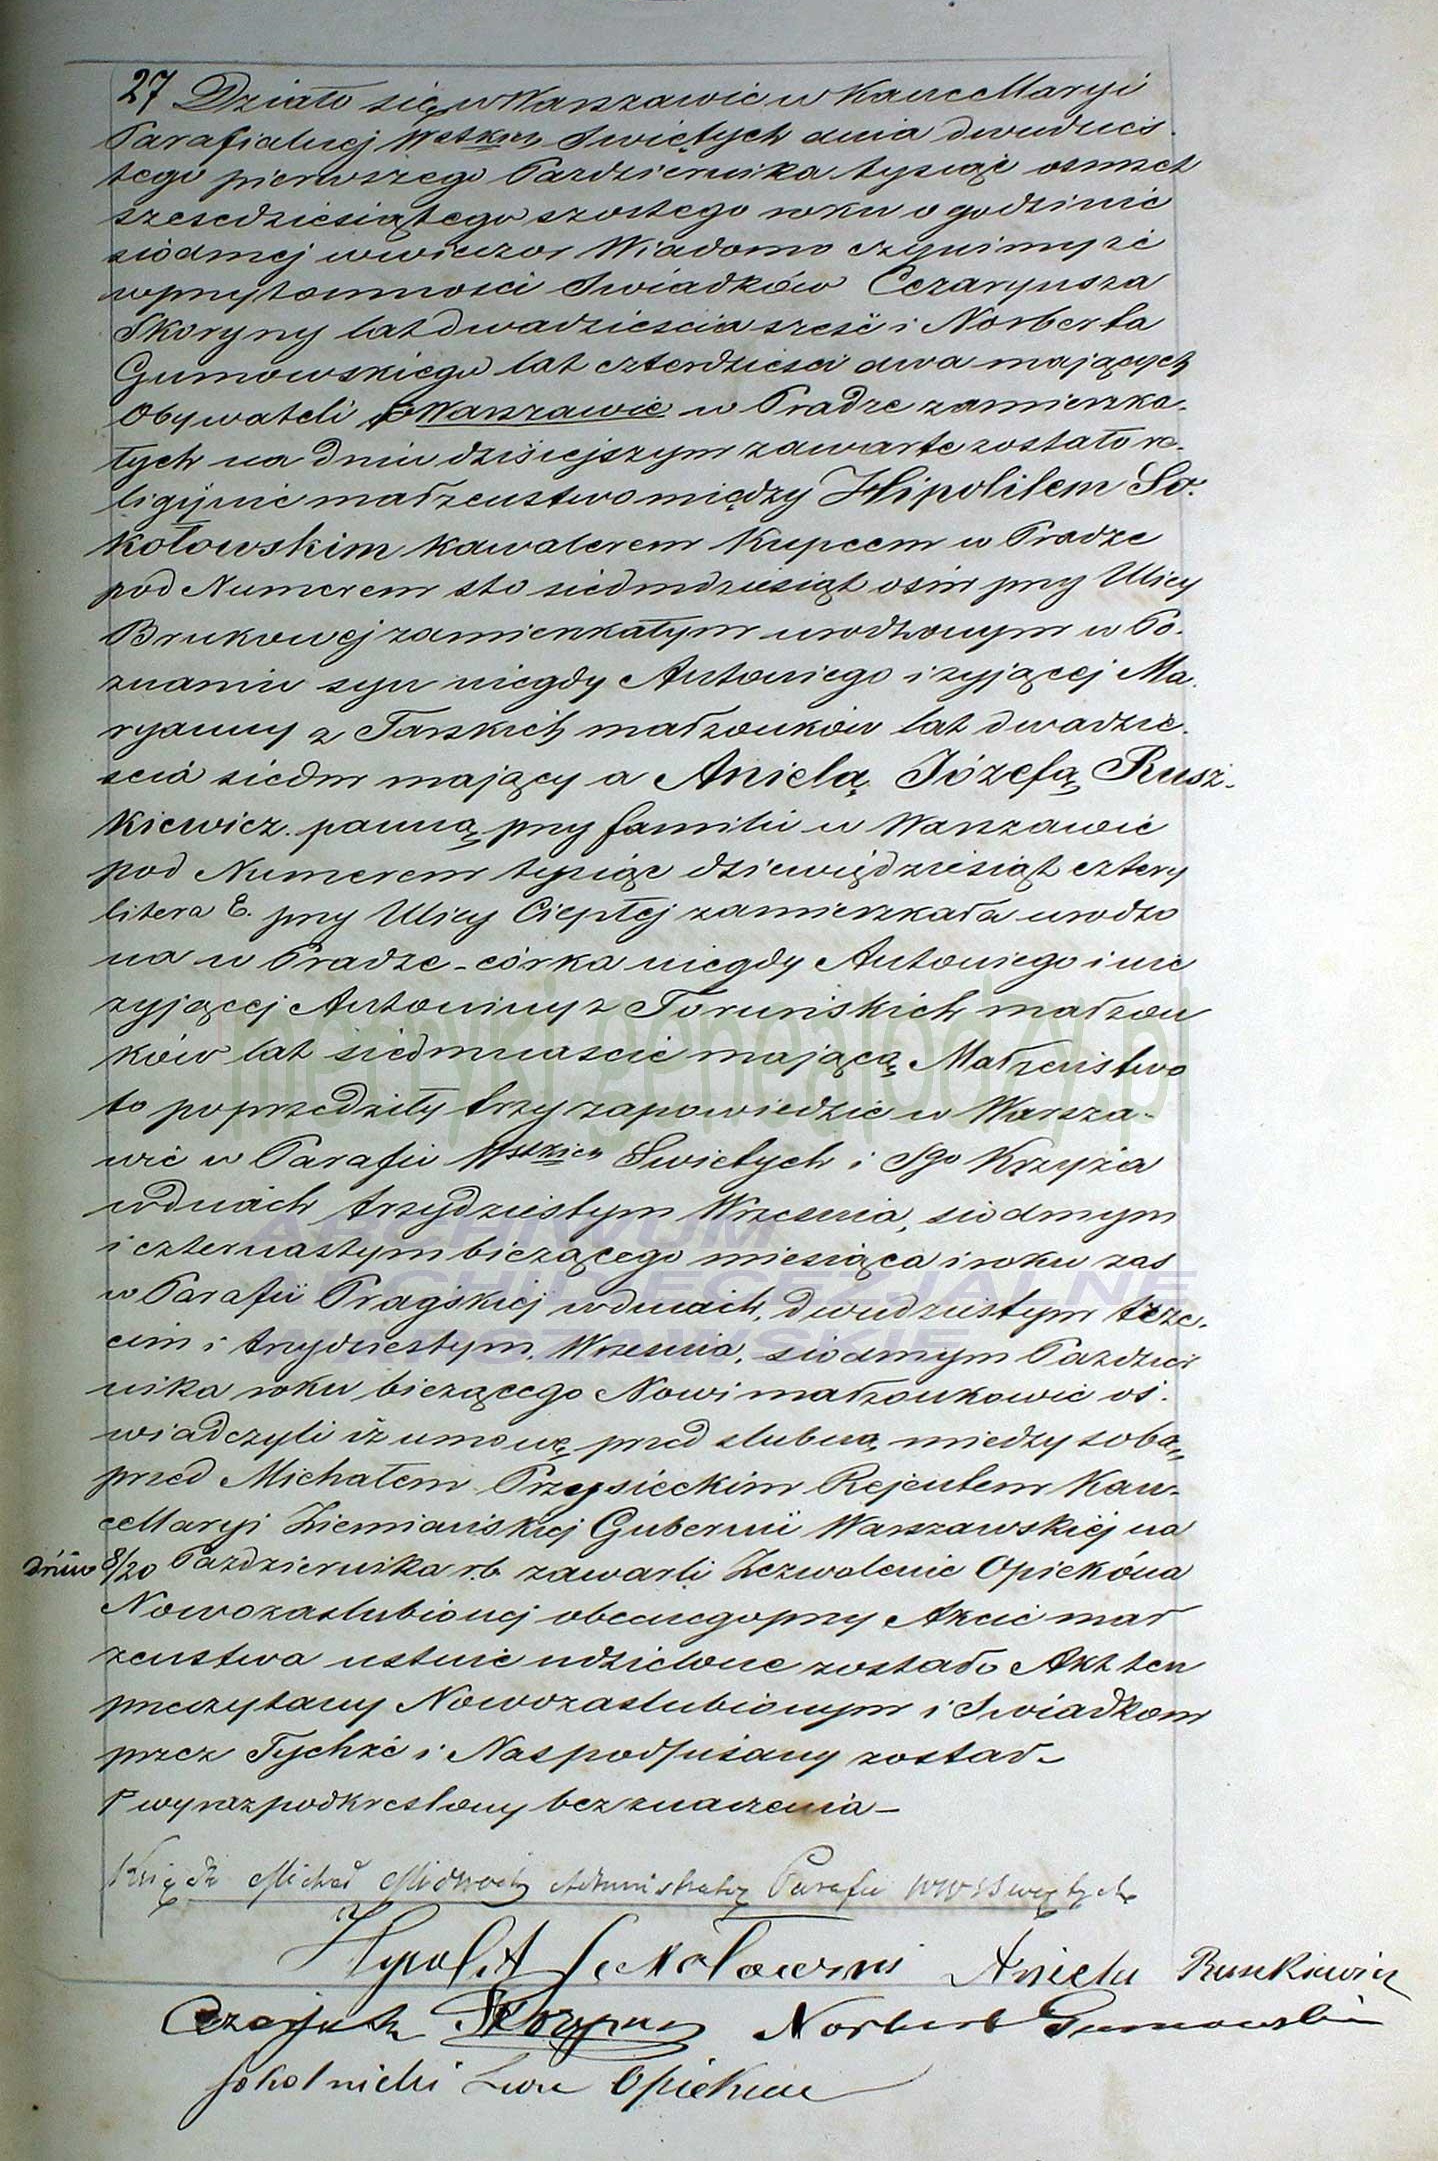 27 Działo się w Warszawie w Kancellaryi
Parafialnej Wstkich Świętych dnia dwudzies
tego pierwszego Pazdziernika tysiąc osmset
szescdziesiątego szostego roku o godzinie
siodmej wwieczor Wiadomo czynimy że
wprzytomności Swiadków Cezaryusza
Skoryny lat dwadziescia sześć i Norberta
Gumowskiego lat czterdzieści dwa mających
Obywateli w Warszawie w Pradze zamieszka-
łych na dniu dzisiejszym zawarte zostało re-
ligijnie małżeństwo między Hipolitem So-
kołowskim kawalerem Kupcem w Pradze
pod Numerem sto siedmdziesiąt ośm przy Ulicy
Brukowej zamieszkałym urodzonym w Po-
znaniu syn niegdy Antoniego i żyjącej Ma-
ryanny z Tarskich małżonków lat dwadzie-
scia siedm mający a Anielą Józefą Rusz-
kiewicz panną przy familii w Warszawie
pod Numerem tysiąc dziewięćdziesiąt cztery
litera E. przy Ulicy Ciepłej zamieszkała urodzo
na w Pradze - córka niegdy Antoniego i nie
żyjącej Antoniny z Toruńskich małżon
ków lat siedmnascie mającą Małżeństwo
to poprzedziły trzy zapowiedzie w Warsza-
wie w Parafii Wstkich Swietych i Sgo Krzyża
wdniach trzydziestym Wrzesnia, siodmym
i czternastym bieżącego miesiąca i roku zas
w Parafii Pragskiej wdniach, dwudziestym trze-
cim i trzydziestym, Wrzesnia, siodmym Pazdzier
nika roku bieżącego Nowi małżonkowie oś-
wiadczyli iż umowę przed slubną miedzy sobą
przed Michałem Przysieckim Rejentem Kan-
cellaryi Ziemiańskiej Gubernii Warszawskiéj na
dniu 8/20 Pazdziernika rb. zawarli Zezwolenie Opiekóna
Nowozaslubionej obecnego przy Akcie mał
żenstwa ustnie udzielone zostało Akt ten
przeczytany Nowozaslubionym i Swiadkom
przez Tychże i Nas podpisany został -
wyraz podkreslony bez znaczenia -
Ksiądz Michał Administrator Parafii WWSSwiętych
Hypolit Sokołowski Aniela Ruszkiewicz
Cezaryusz Skoryna Norbert Gumowski
Sokolnicki Opiekun